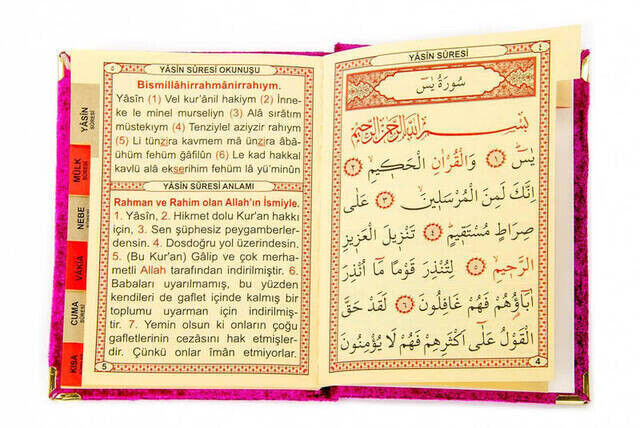 YÂSÎN SÛRESİ
سُورَةُ يٰسٓ
بِسْمِ اللّٰهِ الرَّحْمٰنِ الرَّحِيمِ
يٰسٓ ﴿١﴾ وَالْقُرْاٰنِ الْحَكِيمِ ﴿٢﴾
اِنَّكَ لَمِنَ الْمُرْسَلِينَ ﴿٣﴾ عَلٰى
صِرَاطٍ مُسْتَقِيمٍ ﴿٤﴾ تَنْزِيلَ الْعَزِيزِ
الرَّحِيمِ ﴿٥﴾ لِتُنْذِرَ قَوْمًا مَٓا اُنْذِرَ
اٰبَٓاؤُهُمْ فَهُمْ غَافِلُونَ ﴿٦﴾ لَقَدْ حَقَّ
الْقَوْلُ عَلٰٓى اَكْثَرِهِمْ فَهُمْ لَا يُؤْمِنُونَ
4
YÂSÎN SÛRESİ OKUNUŞU
Bismillâhirrahmânirrahıym.
Yâsîn (1) Vel kur'ânil hakiym (2) İnne-
ke le minel murseliyn (3) Alâ sırâtım
müstekıym (4) Tenziylel aziyzir rahıym
(5) Li tünzira kavmem mâ ünzira âbâ-
ühüm fehüm ğâfilûn (6) Le kad hakkal
kavlü alâ ekserihim fehüm lâ yü'minûn
YÂSÎN SÛRESİ ANLAMI
Rahman ve Rahim olan Allah'ın İsmiyle.
1. Yâsîn, 2. Hikmet dolu Kur'an hakkı
için, 3. Sen şüphesiz peygamberler-
densin. 4. Dosdoğru yol üzerindesin.
5. (Bu Kur'an) Gâlip ve çok merha-
metli Allah tarafından indirilmiştir. 6.
Babaları uyarılmamış, bu yüzden
kendileri de gaflet içinde kalmış bir
toplumu uyarman için indirilmiş-
tir. 7. Yemin olsun ki onların çoğu
gafletlerinin cezasını hak etmişler-
dir. Çünkü onlar îman etmiyorlar.
5
YÂSİN
SÛRESİ
MÜLK
SÛRESİ
NEBE
SÛRESİ
VAKIA
CUMA
SÛRESİ
KISA